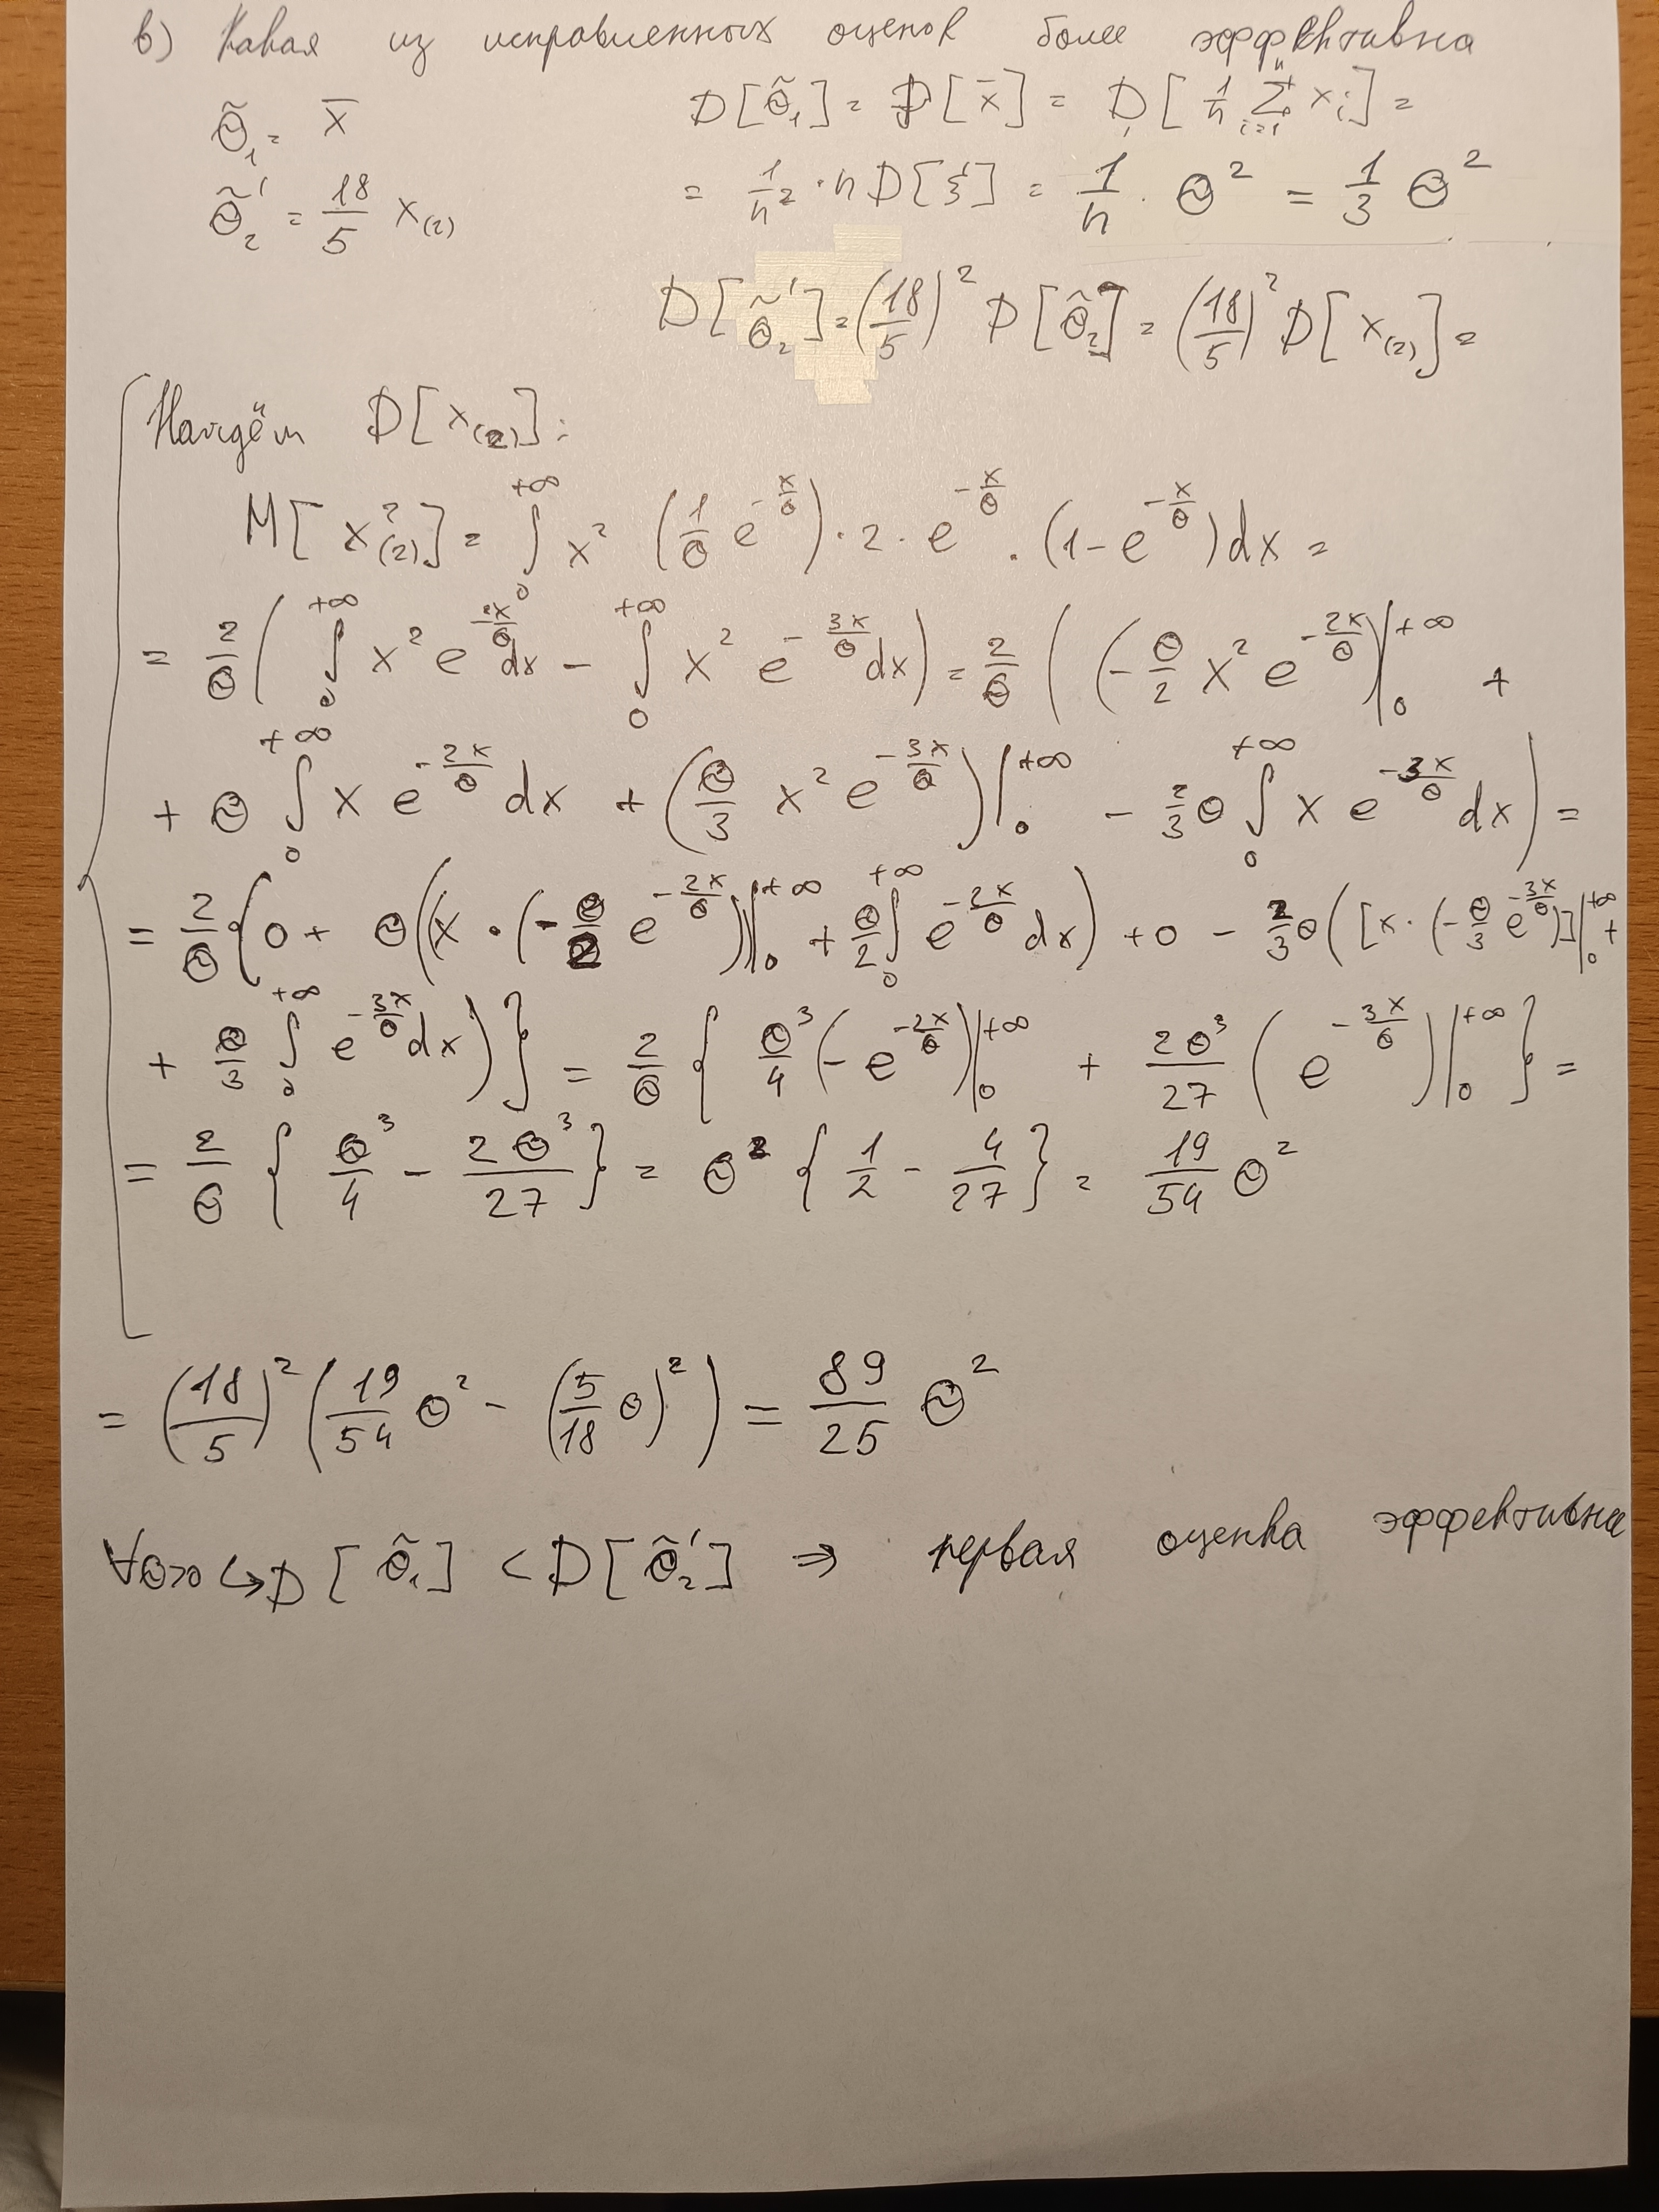 в) Какая из исправленных оценок более эффективна
θ̃₁ = x̄
D[θ̃₁] = D[x̄] = D[1/n Σ_{i=1}^{n} x_i] =
θ̃₂' = 18/5 x₍₂₎
= 1/n² · n D[ξ] = 1/n · θ² = 1/3 θ²
D[θ̃₂'] = (18/5)² D[θ̃₂] = (18/5)² D[x₍₂₎] =
Найдём D[x₍₂₎]:
M[x²₍₂₎] = ∫₀^{+∞} x² (1/θ e^{-x/θ}) · 2 · e^{-x/θ} · (1 - e^{-x/θ}) dx =
= 2/θ ( ∫₀^{+∞} x² e^{-2x/θ} dx - ∫₀^{+∞} x² e^{-3x/θ} dx ) = 2/θ ( (-θ/2 x² e^{-2x/θ})|₀^{+∞} +
+ θ ∫₀^{+∞} x e^{-2x/θ} dx + (θ/3 x² e^{-3x/θ})|₀^{+∞} - 2/3 θ ∫₀^{+∞} x e^{-3x/θ} dx ) =
= 2/θ { 0 + θ((x · (-θ/2 e^{-2x/θ}))|₀^{+∞} + θ/2 ∫₀^{+∞} e^{-2x/θ} dx) + 0 - 2/3 θ ([x · (-θ/3 e^{-3x/θ})]|₀^{+∞} +
+ θ/3 ∫₀^{+∞} e^{-3x/θ} dx ) } = 2/θ { θ³/4 (-e^{-2x/θ})|₀^{+∞} + 2θ³/27 (e^{-3x/θ})|₀^{+∞} } =
= 2/θ { θ³/4 - 2θ³/27 } = θ² { 1/2 - 4/27 } = 19/54 θ²
= (18/5)² (19/54 θ² - (5/18 θ)²) = 89/25 θ²
∀θ>0 ↪ D[θ̃₁] < D[θ̃₂'] ⇒ первая оценка эффективна